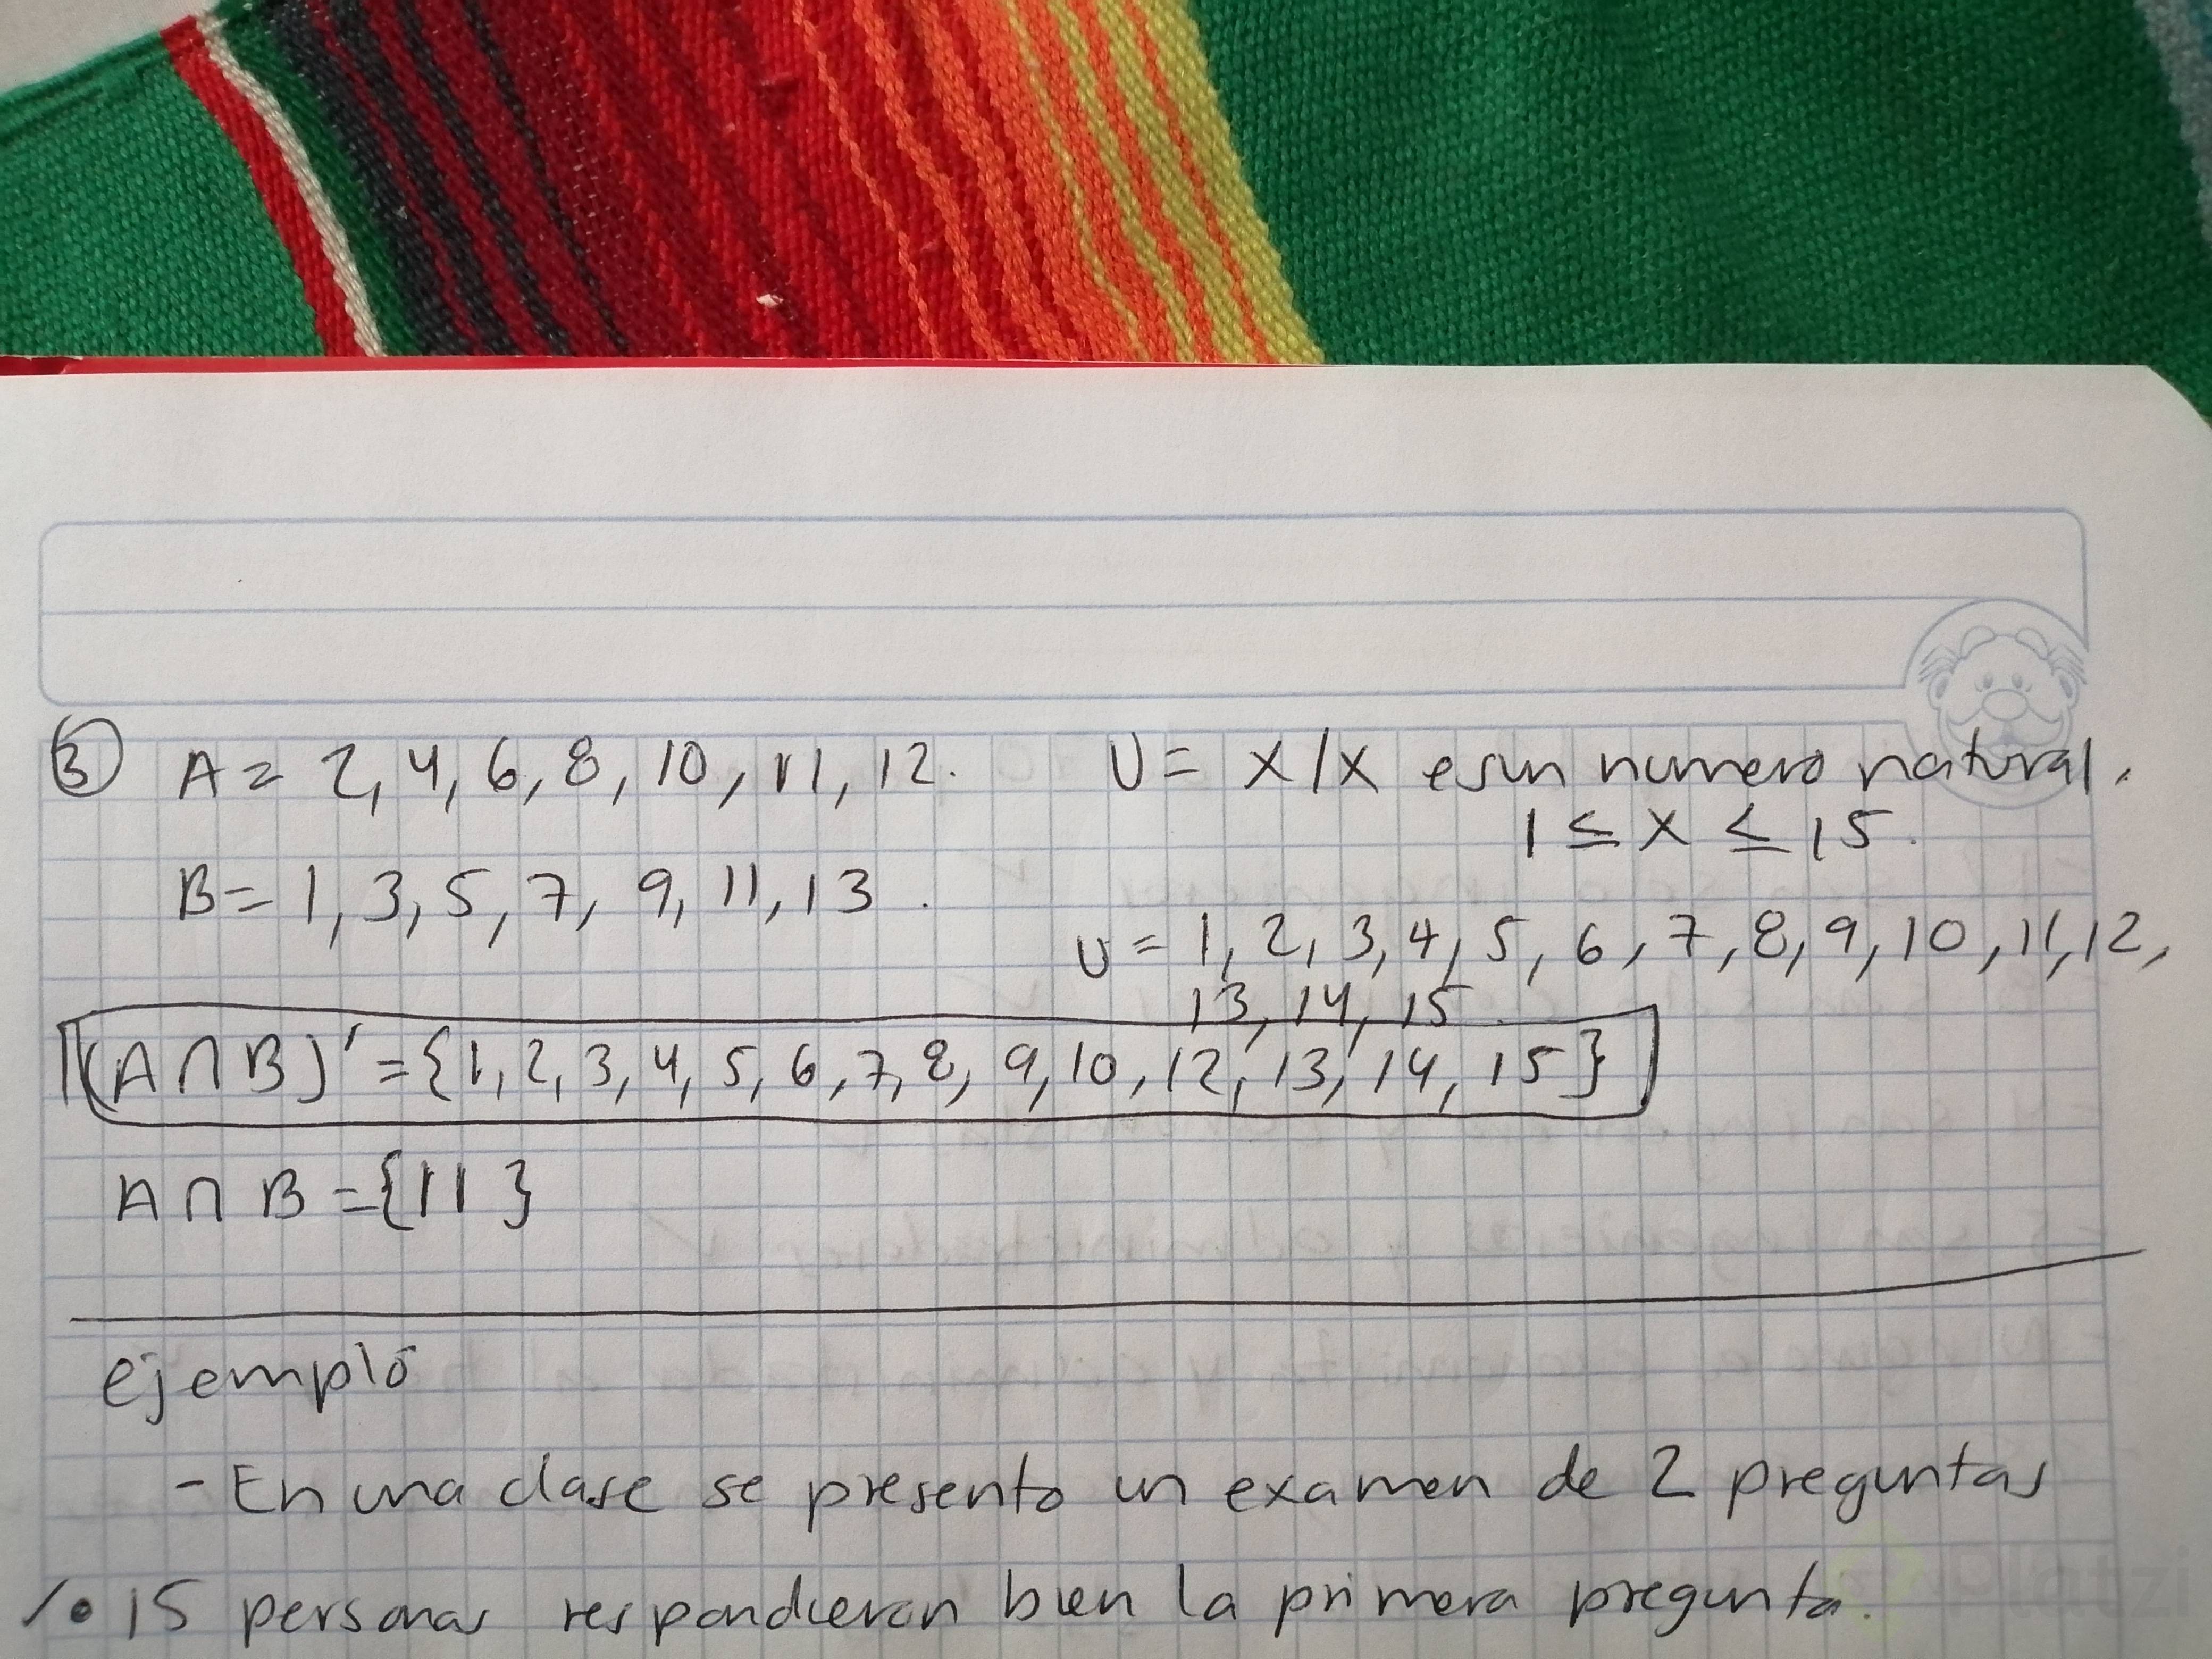 ③ A = 2, 4, 6, 8, 10, 11, 12.
U = x/x es un numero natural.
1 ≤ x ≤ 15.
B = 1, 3, 5, 7, 9, 11, 13.
U = 1, 2, 3, 4, 5, 6, 7, 8, 9, 10, 11, 12,
13, 14, 15.
(A∩B)' = {1, 2, 3, 4, 5, 6, 7, 8, 9, 10, 12, 13, 14, 15}
A∩B = {11}
ejemplo
- En una clase se presento un examen de 2 preguntas
• 15 personas respondieron bien la primera pregunta.